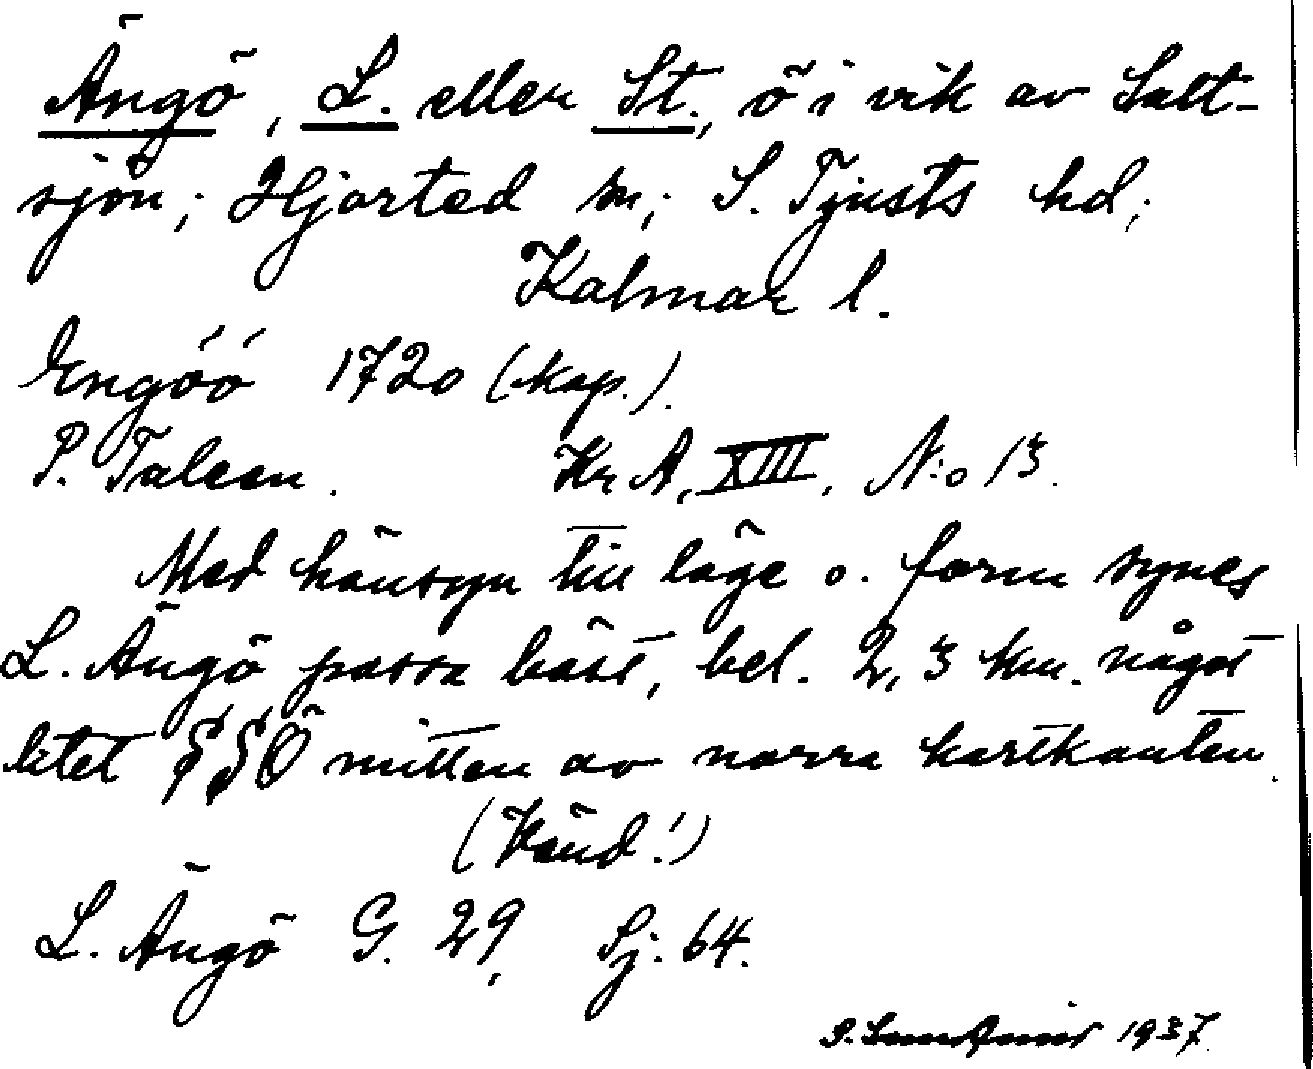 Ängö, L. eller St., ö i vik av Salt-
sjön; Hjorted sn; S. Tjusts hd;
Kalmar l.
Engöö 1720 (kop.).
P. Taleen. Kr A, XIII, N:o 13.
Med hänsyn till läge o. form synes
L. Ängö passa bäst, bel. 2,3 km. något
litet SSÖ mitten av norra kartkanten.
(Vänd!)
L. Ängö G. 29, Sj. 64.
1937